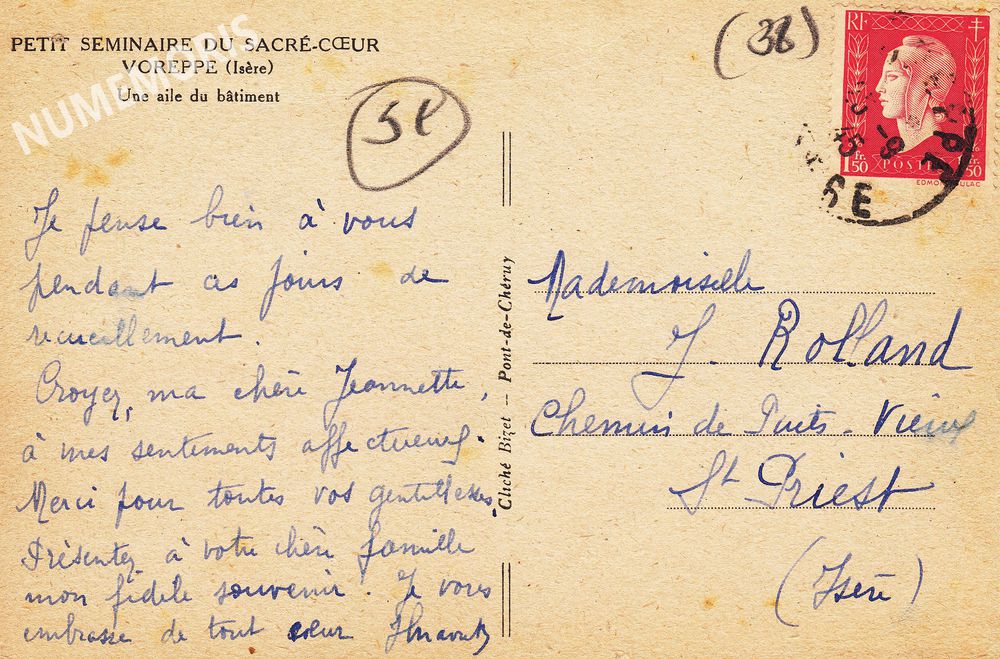 PETIT SEMINAIRE DU SACRÉ-CŒUR
VOREPPE (Isère)
Une aile du bâtiment
NUMEMORIS
5e
(38)
RF
1 Fr. 50
POSTES
1 Fr. 50
Je pense bien à vous
pendant ces jours de
recueillement.
Croyez, ma chère Jeannette,
à mes sentements affectueux.
Merci pour toutes vos gentillesses.
Présentez à votre chère famille
mon fidèle souvenir. Je vous
embrasse de tout cœur
Cliché Bizet -- Pont-de-Chéruy
Mademoiselle
J. Rolland
Chemin de Puits-Vieux
St Priest
(Isère)